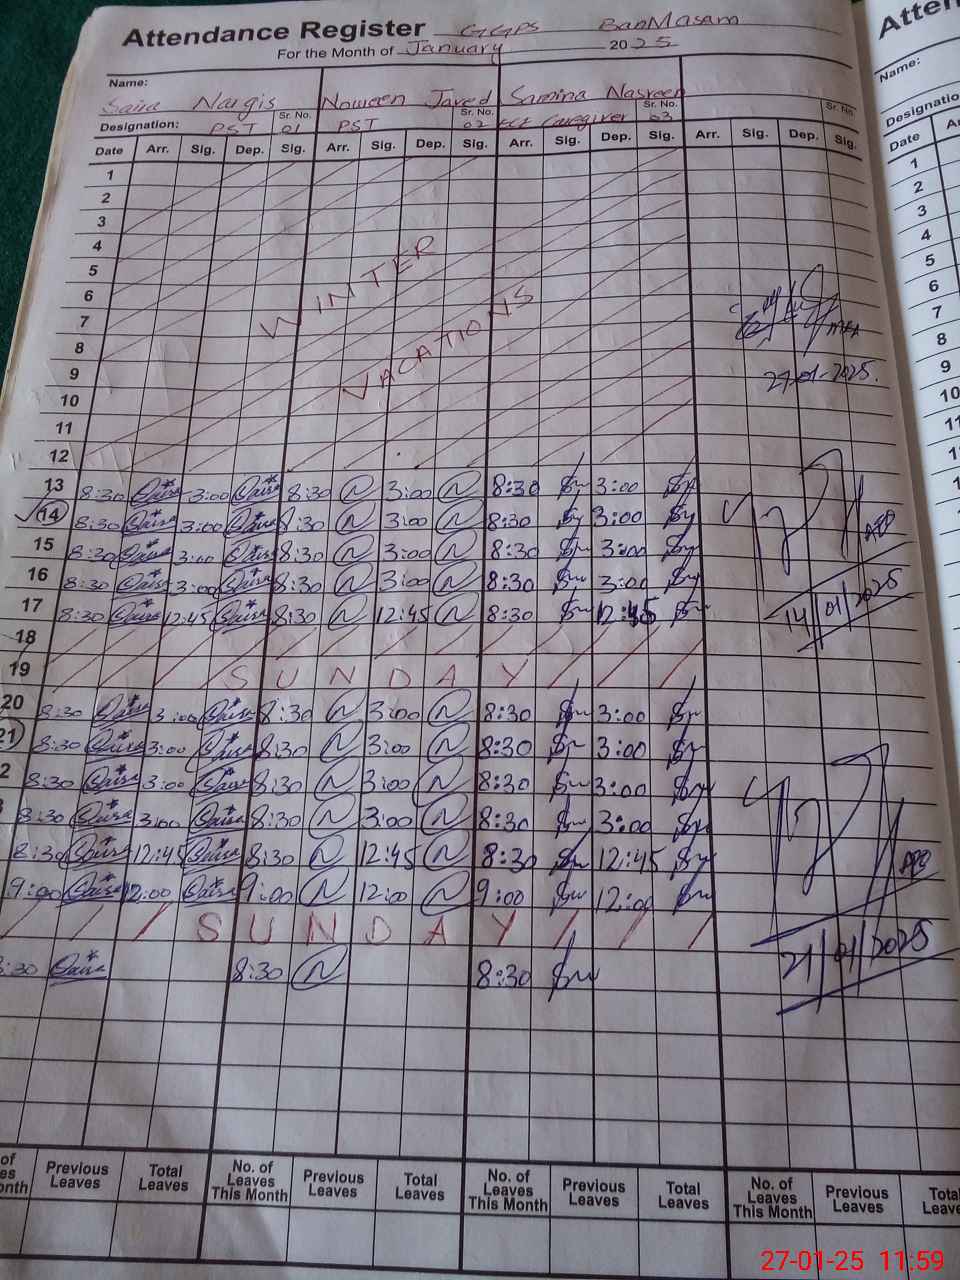 Attendance Register GGPS BanMasam
For the Month of January 2025
Name:
Saira Nargis Noureen Javed Samina Nasreen
Designation: PST Sr. No. 01 PST Sr. No. 02 Caregiver Sr. No. 03 Sr. No.
Date Arr. Sig. Dep. Sig. Arr. Sig. Dep. Sig. Arr. Sig. Dep. Sig. Arr. Sig. Dep. Sig.
1
2
3
4
5
6
7
8
9
10
11
12
WINTER
VACATIONS
27-01-2025.
13 8:30 Saira 3:00 Saira 8:30 N 3:00 N 8:30 3:00
14 8:30 Saira 3:00 Saira 8:30 N 3:00 N 8:30 3:00
15 8:30 Saira 3:00 Saira 8:30 N 3:00 N 8:30 3:00
16 8:30 Saira 3:00 Saira 8:30 N 3:00 N 8:30 3:00
17 8:30 Saira 12:45 Saira 8:30 N 12:45 N 8:30 12:45
AEO
14/01/2025
18
19 SUNDAY
20 8:30 Saira 3:00 Saira 8:30 N 3:00 N 8:30 3:00
21 8:30 Saira 3:00 Saira 8:30 N 3:00 N 8:30 3:00
2 8:30 Saira 3:00 Saira 8:30 N 3:00 N 8:30 3:00
8:30 Saira 3:00 Saira 8:30 N 3:00 N 8:30 3:00
8:30 Saira 12:45 Saira 8:30 N 12:45 N 8:30 12:45
9:00 Saira 12:00 Saira 9:00 N 12:00 N 9:00 12:00
AEO
SUNDAY
21/01/2025
:30 Saira 8:30 N 8:30
Previous Leaves Total Leaves No. of Leaves This Month Previous Leaves Total Leaves No. of Leaves This Month Previous Leaves Total Leaves No. of Leaves This Month Previous Leaves
Name:
Date
1
2
3
4
5
6
7
8
9
10
27-01-25 11:59